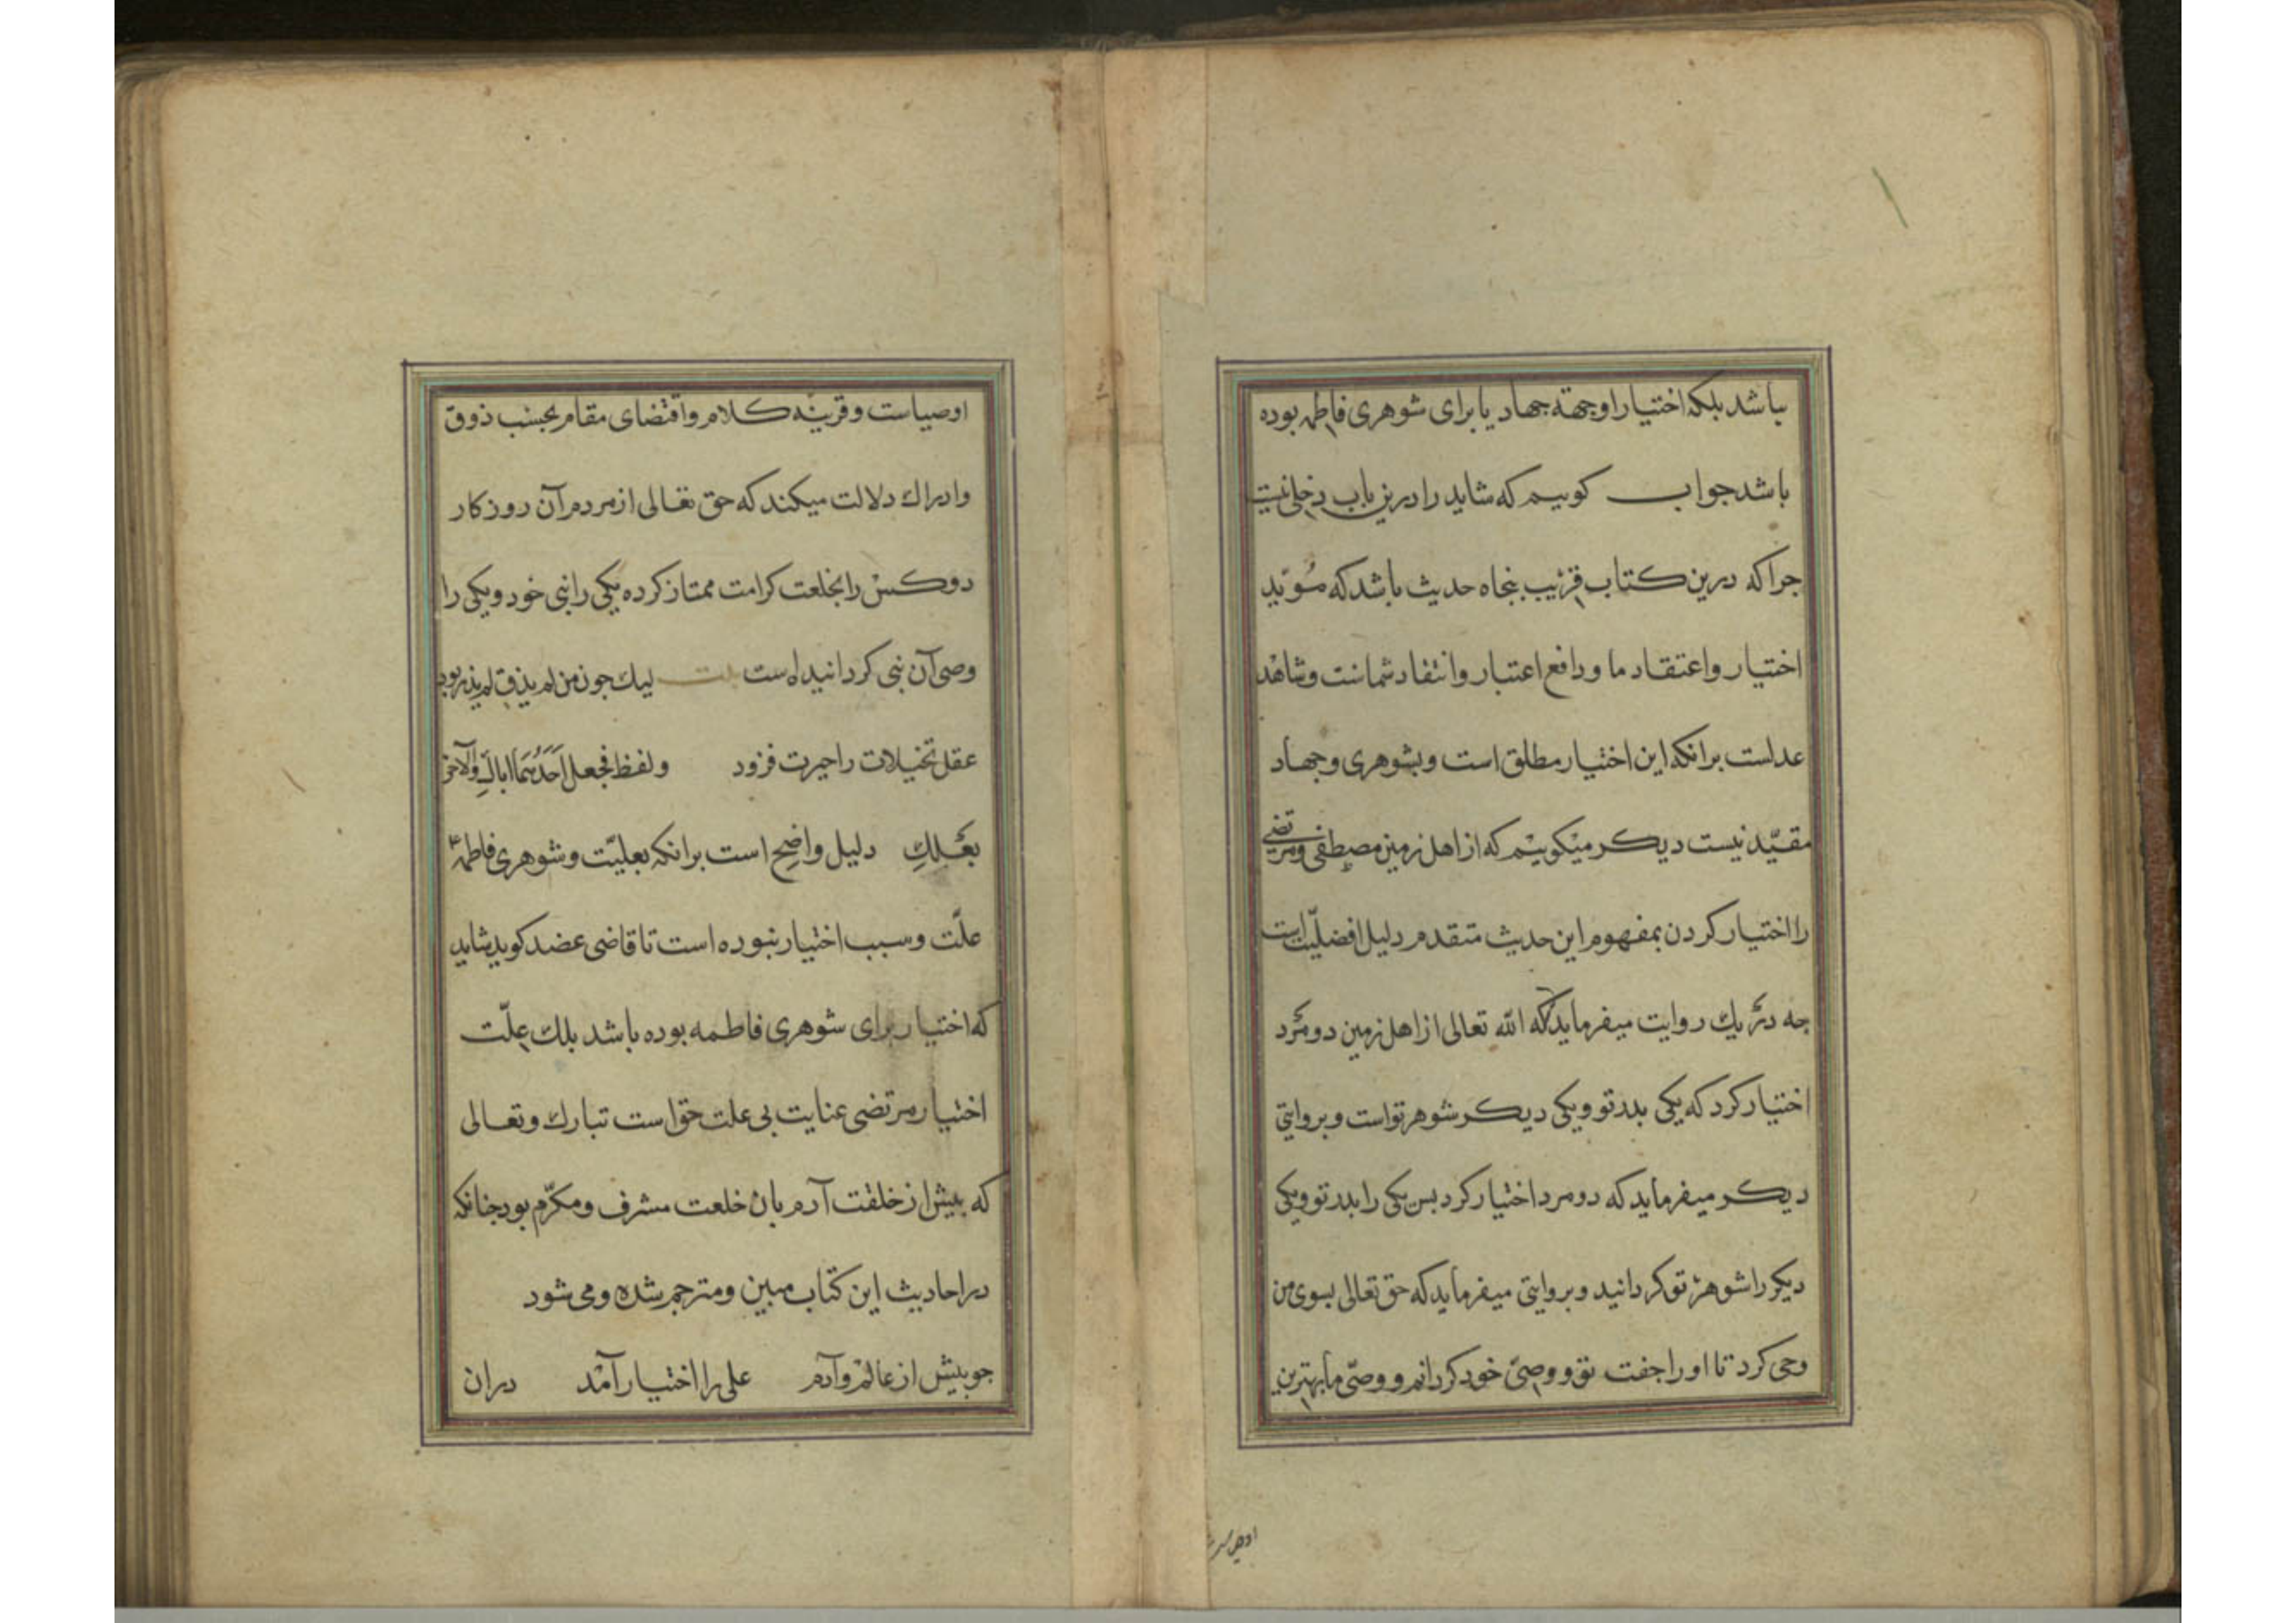 باشد بلکه اختیار او جهة جهاد یا برای شوهری فاطمه بوده
باشد جواب کوییم که شاید را درین باب دخلی نیست
جرا که درین کتاب قریب بنجاه حدیث باشد که مؤید
اختیار و اعتقاد ما و دافع اعتبار و انتقاد شماست و شاهد
عدلست برانکه این اختیار مطلق است و بشوهری و جهاد
مقیّد نیست دیکر میکوییم که از اهل زمین مصطفی و مرتضی
را اختیار کردن بمفهوم این حدیث متقدم دلیل افضلیّت است
جه در یك روایت میفرماید که الله تعالی از اهل زمین دو مرد
اختیار کرد که یکی بدر تو و یکی دیکر شوهر تو است و بروایتی
دیکر میفرماید که دو مرد اختیار کرد بس یکی را بدر تو و یکی
دیکر را شوهر تو کردانید و بروایتی میفرماید که حق تعالی بسوی من
وحی کرد تا او را جفت تو و وصیّ خود کردانم و وصیّ ما بهترین
اوصیاست
اوصیاست و قرینه کلام و اقتضای مقام بحسب ذوق
و ادراك دلالت میکند که حق تعالی از مردم آن روزکار
دو کس را بخلعت کرامت ممتاز کرده یکی را نبی خود و یکی را
وصی آن نبی کردانیده است بیت لیك جون من لم یذق لم یدر بود
عقل تخیلات را حیرت فزود و لفظ فجعل اَحَدُهُمَا اباكِ والآخر
بعلكِ دلیل واضح است برانکه بعلیّت و شوهری فاطمه ع
علّت و سبب اختیار نبوده است تا قاضی عضد کوید شاید
که اختیار برای شوهری فاطمه بوده باشد بلك علّت
اختیار مرتضی عنایت بی علت حق است تبارك و تعالی
که بیش از خلقت آدم بان خلعت مشرف و مکرّم بود جنانکه
در احادیث این کتاب مبین و مترجم شده و می شود
جو بیش از عالم و آدم علی را اختیار آمد دران